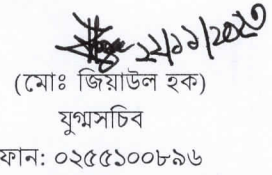 ২২/১১/২০২৩
(মোঃ জিয়াউল হক)
যুগ্মসচিব
ফান: ০২৫৫১০০৮৯৬